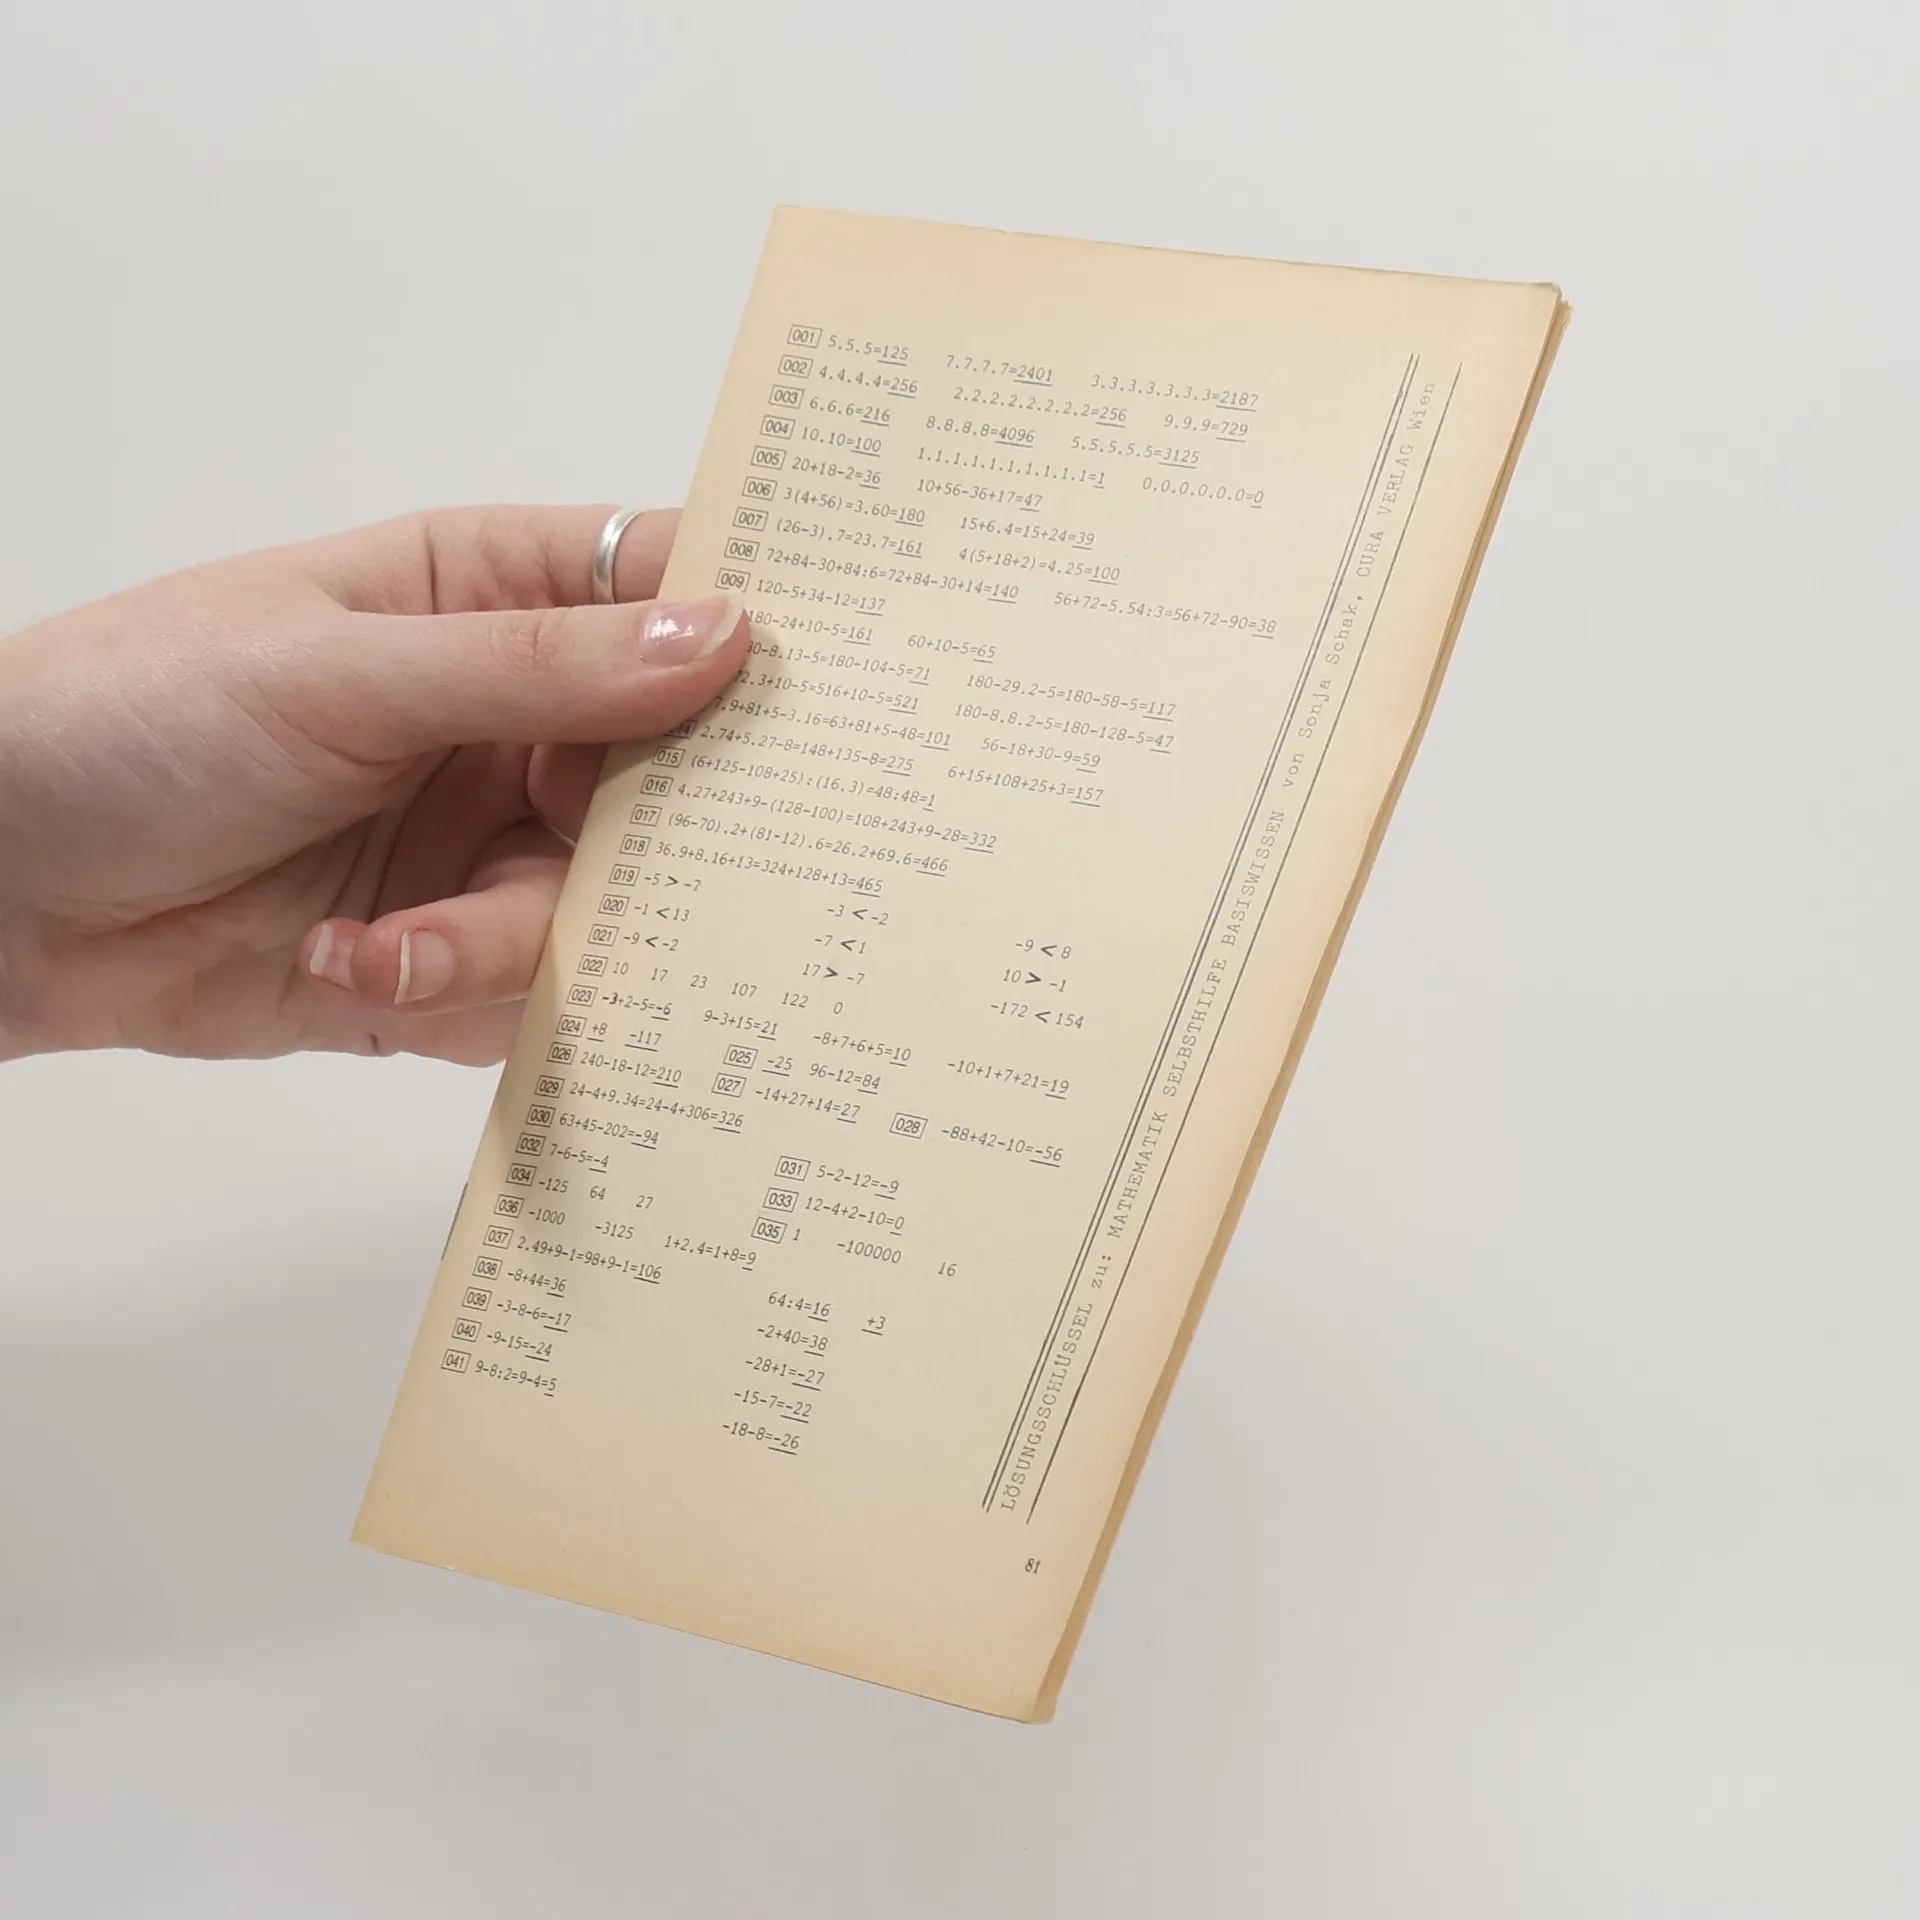 001 5.5.5=125 7.7.7.7=2401 3.3.3.3.3.3.3=2187
002 4.4.4.4=256 2.2.2.2.2.2.2.2=256 9.9.9=729
003 6.6.6=216 8.8.8.8=4096 5.5.5.5.5=3125
004 10.10=100 1.1.1.1.1.1.1.1.1.1=1 0.0.0.0.0.0=0
005 20+18-2=36 10+56-36+17=47
006 3(4+56)=3.60=180 15+6.4=15+24=39
007 (26-3).7=23.7=161 4(5+18+2)=4.25=100
008 72+84-30+84:6=72+84-30+14=140 56+72-5.54:3=56+72-90=38
009 120-5+34-12=137
180-24+10-5=161 60+10-5=65
80-8.13-5=180-104-5=71 180-29.2-5=180-58-5=117
72.3+10-5=516+10-5=521 180-8.8.2-5=180-128-5=47
7.9+81+5-3.16=63+81+5-48=101 56-18+30-9=59
2.74+5.27-8=148+135-8=275 6+15+108+25+3=157
015 (6+125-108+25):(16.3)=48:48=1
016 4.27+243+9-(128-100)=108+243+9-28=332
017 (96-70).2+(81-12).6=26.2+69.6=466
018 36.9+8.16+13=324+128+13=465
019 -5 > -7 -3 < -2 -9 < 8
020 -1 < 13 -7 < 1 10 > -1
021 -9 < -2 17 > -7 -172 < 154
022 10 17 23 107 122 0
023 -3+2-5=-6 9-3+15=21 -8+7+6+5=10 -10+1+7+21=19
024 +8 -117 025 -25 96-12=84
026 240-18-12=210 027 -14+27+14=27 028 -88+42-10=-56
029 24-4+9.34=24-4+306=326
030 63+45-202=-94 031 5-2-12=-9
032 7-6-5=-4 033 12-4+2-10=0
034 -125 64 27 035 1 -100000 16
036 -1000 -3125 1+2.4=1+8=9
037 2.49+9-1=98+9-1=106 64:4=16 +3
038 -8+44=36 -2+40=38
039 -3-8-6=-17 -28+1=-27
040 -9-15=-24 -15-7=-22
041 9-8:2=9-4=5 -18-8=-26
LÖSUNGSSCHLÜSSEL zu: MATHEMATIK SELBSTHILFE BASISWISSEN von Sonja Schak, CURA VERLAG Wien
81